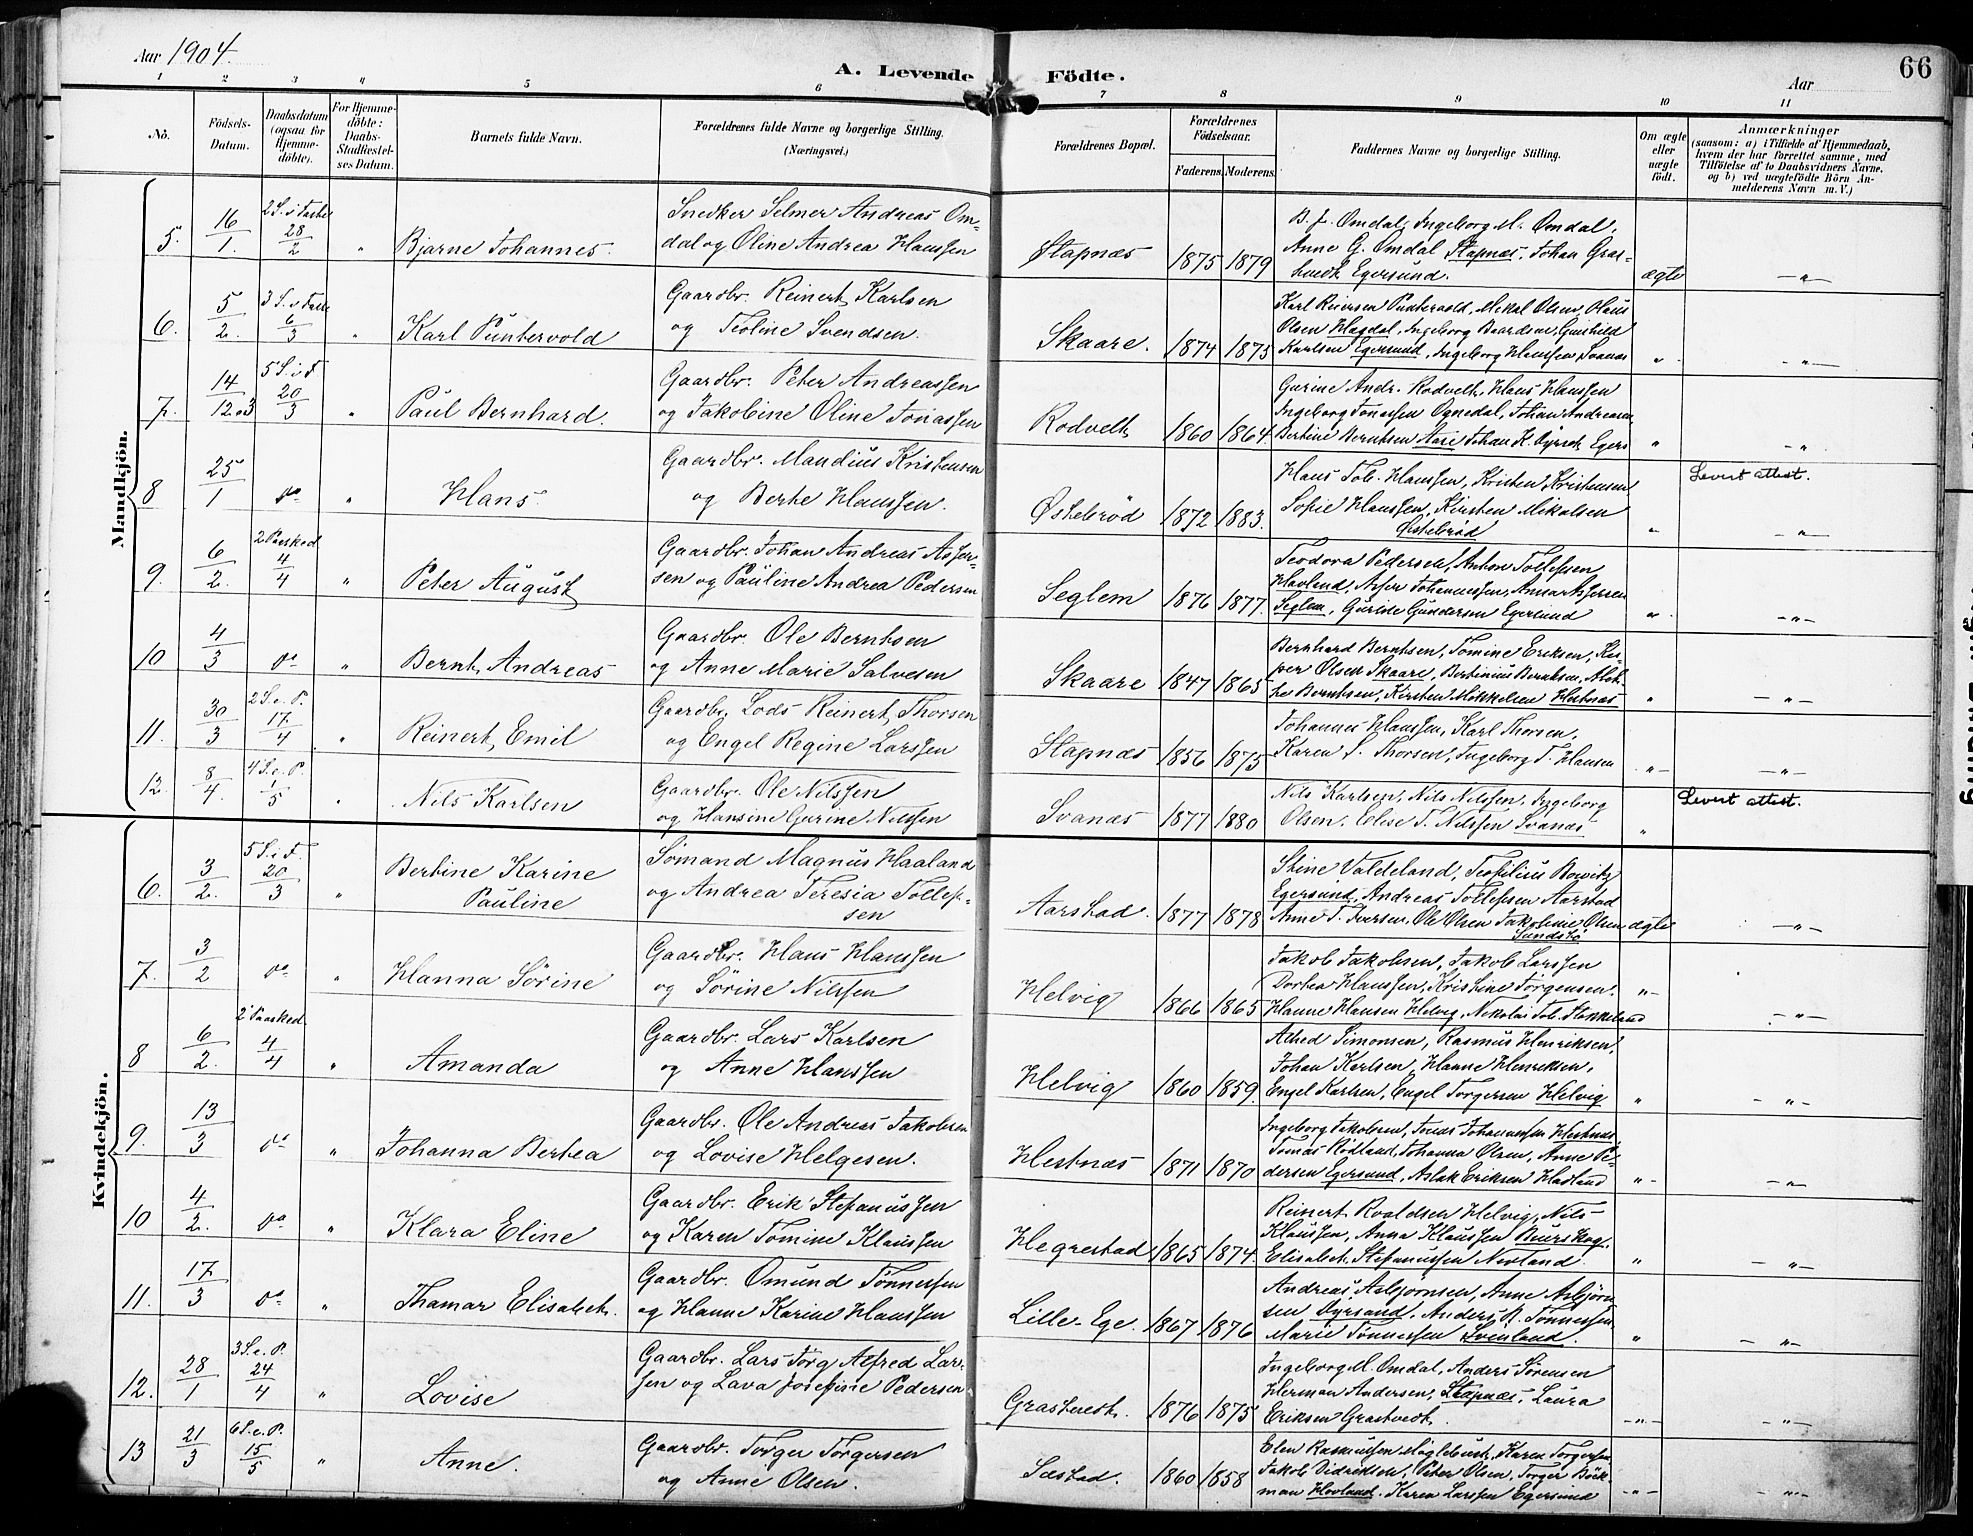 Aar 1904.
A. Levende Födte.
Aar
66
1 2 3 4 5 6 7 8 9 10 11
No.
Födsels-Datum.
Daabsdatum (ogsaa for Hjemme-döbte).
For Hjemme-döbte: Daabs-Stadfæstel-ses Datum.
Barnets fulde Navn.
Forældrenes fulde Navne og borgerlige Stilling. (Næringsvei.)
Forældrenes Bopæl.
Forældrenes Födselsaar.
Faderens. Moderens.
Faddernes Navne og borgerlige Stilling.
Om ægte eller uægte födt.
Anmærkninger
(saasom: a) i Tilfælde af Hjemmedaab,
hvem der har forrettet samme, med
Tilföielse af to Daabsvidners Navne.
og b) ved uægtefödte Börn An-
melderens Navn m. V.)
Mandkjön.
5. 16/1. 2 S. i Faste 28/2 " Bjarne Johannes. Snedker Selmer Andreas Om-
dal og Oline Andrea Hanssen Stapnæs 1875 1879
B. J. Omdal, Ingeborg M. Omdal,
Anne G. Omdal Stapnæs, Johan Gras-
tvedt Egersund. ægte — " —
6. 5/2. 3 S. i Faste 6/3 " Karl Puntervold Gaardbr. Reinert Karlsen
og Teoline Svendsen. Skaare. 1874 1875
Karl Reiersen Puntervold, Mikal Olsen, Olaus
Olsen Hagdal, Ingeborg Baardsen, Gunhild
Karlsen Egersund, Ingeborg Hanssen Svanæs " "
7. 14/12.03 5 S. i F. 20/3 " Paul Bernhard. Gaardbr. Peter Andreassen
og Jakobine Oline Jonassen Rodvelt 1860 1864.
Gurine Andr. Rodvelt, Hans Hanssen
Ingeborg Jonassen Ognedal, Johan Andreasen
Bertine Berntsen Aase Johan K. Egers " "
8 25/1 do " Hans. Gaardbr. Mandius Kristensen
og Berte Hanssen. Østebrød 1872 1883.
Hans Tob. Hanssen, Kristen Kristensen
Sofie Hanssen, Kirsten Mikalsen
Østebrød " Levert attest. — " —
9. 6/2. 2 Paasked. 4/4 " Peter August Gaardbr. Johan Andreas Asser-
sen og Pauline Andrea Pedersen Seglem 1876 1877.
Teodora Pedersen, Anton Tollefsen
Havland, Asser Johannessen, Anna Assersen
Seglem, Guride Gundersen Egersund " — " —
10 4/3 do " Bernt Andreas Gaardbr. Ole Berntsen
og Anne Marie Salvesen Skaare 1847 1865
Bernhard Berntsen, Tomine Eriksen, Kas-
per Olsen Skaare, Bertinius Berntsen,
Berntsen, Kirsten Mikkelsen Hestnæs " — " —
11. 30/3 2 S. e. P. 17/4 " Reinert Emil Gaardbr. Lods Reinert Thorsen
og Engel Regine Larssen Stapnæs 1856 1875
Johannes Hanssen, Karl Thorsen,
Karen S. Thorsen, Ingeborg T. Hansen — " — — " —
12. 8/4. 4 S. e. P. 1/5 " Nils Karlsen Gaardbr. Ole Nilssen
og Hansine Gurine Nilssen Svanæs 1877 1880
Nils Karlsen, Nils Nilssen, Ingeborg
Olsen, Elise T. Nilssen Svanæs " Levert attest.
Kvindekjön.
6. 3/2. 5 S. i F. 20/3 " Bertine Karine
Pauline Sømand Magnus Haaland
og Andrea Teresia Tollef-
sen Aarstad. 1877 1878
Stine Valdeland, Teofilius Bowitz
Egersund, Andreas Tollefsen Aarstad
Anne T. Iversen, Ole Olsen Jakobine Olsen
Sundstø ægte — " —
7. 3/2 do " Hanna Sörine Gaardbr. Hans Hanssen
og Sörine Nilssen Helvig 1866 1865
Jakob Jakobsen, Jakob Larssen
Dortea Hanssen, Kristine Törgensen.
Hanne Hansen Helvig, Nikolai Tob. Stokkeland " — — " —
8 6/2. 2 Paasked. 4/4 " Amanda Gaardbr. Lars Karlsen
og Anne Hanssen Helvig 1860 1859.
Simonsen, Rasmus Henriksen,
Johan Karlsen, Hanne Henriksen,
Engel Karlsen, Engel Torgersen Helvig " — " —
9. 13/3 do " Johanna Bertea Gaardbr. Ole Andreas Jakobsen
og Lovise Helgesen. Hestnæs 1871 1870
Ingeborg Jakobsen, Jonas Johannessen Hestnæs,
Tomas Rödland, Johanna Olsen, Anne Pe-
dersen Egersund, Aslak Eriksen Hadland " — — " —
10 4/2. do " Klara Eline Gaardbr. Erik Stefanussen
og Karen Tomine Klaussen Hegrestad. 1865 1874.
Reinert Roaldsen Helvig, Nils
Klaussen, Anna Klaussen Ruerskog,
Elisabet Stefanussen Nevland. " — " —
11. 17/3 do " Thamar Elisabeth. Gaardbr. Omund Tönnessen
og Hanne Karine Hanssen Lille-Ege. 1867 1876
Andreas Asbjørnsen, Anne Asbjørn-
sen Dyrsand, Anders R. Tönnessen
Marie Tönnessen Svenland. " — " —
12. 28/1 3 S. e. P. 24/4 " Lovise Gaardbr. Lars Jörg. Alfred Lar-
sen og Lava Josefine Pedersen Grastvedt. 1876 1875
Ingeborg M. Omdal, Anders Sørensen
Herman Andersen, Stapnæs, Laura
Eriksen Grastvedt. — " — — " —
13 21/3 6 S. e. P. 15/5 " Anne. Gaardbr. Torger Torgersen
og Anne Olsen. Sæstad. 1860 1858
Elen Rasmussen Mögletvedt, Karen Torgersen
Jakob Didriksen, Peter Olsen, Torger Böck-
man Hovland. Karen Larssen Egersund — " — — " —